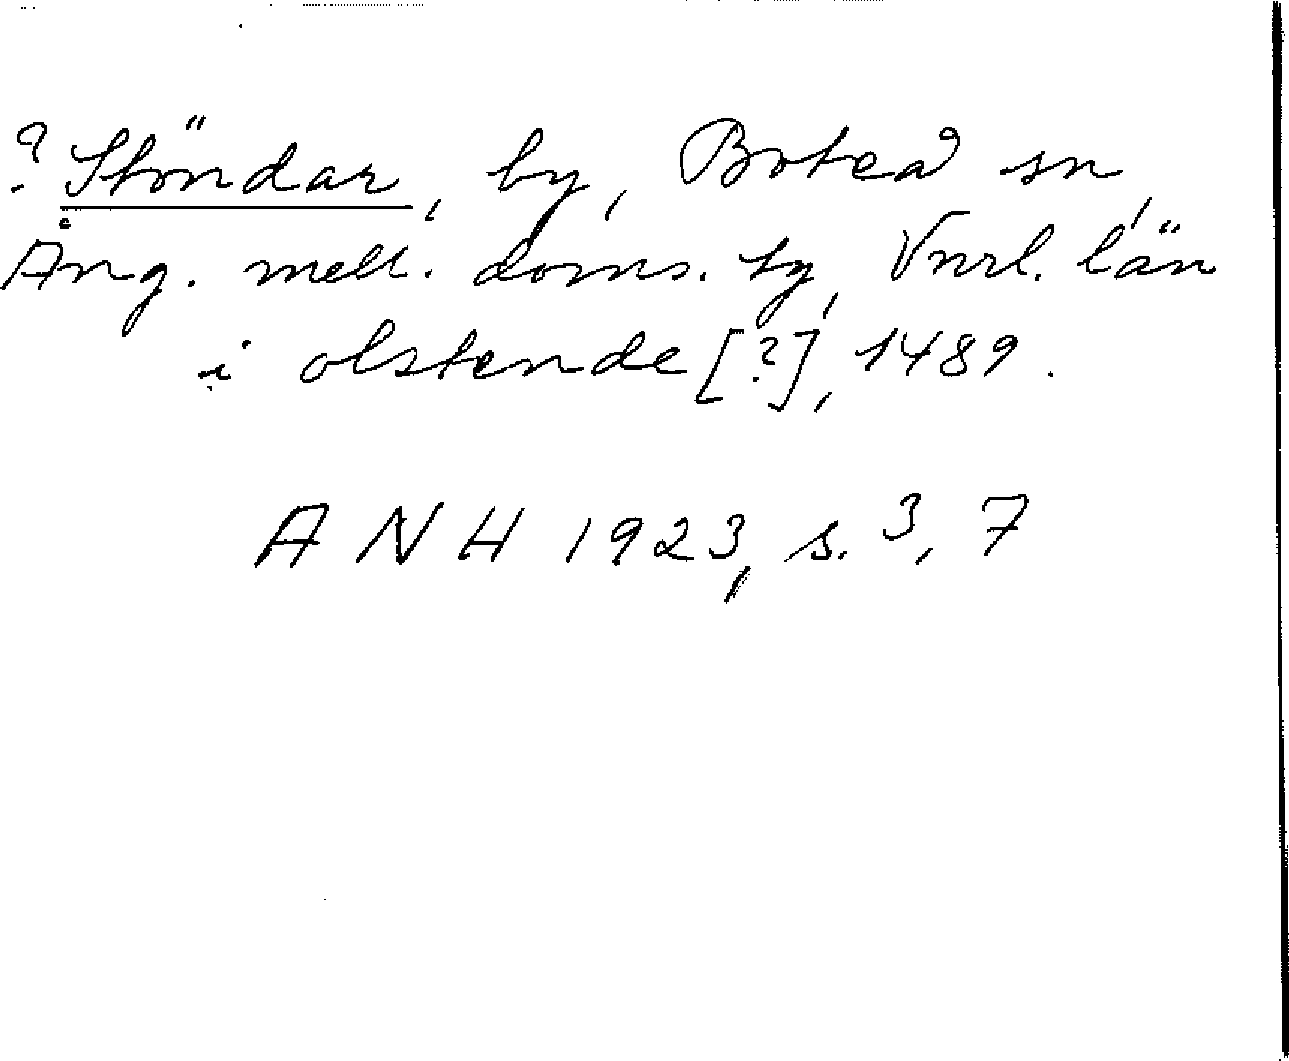 ? Stöndar, by, Boteå sn,
Ång. mell. doms. by, Vnrl. län
i olstende [?], 1489.
A N H 1923, s. 3, 7